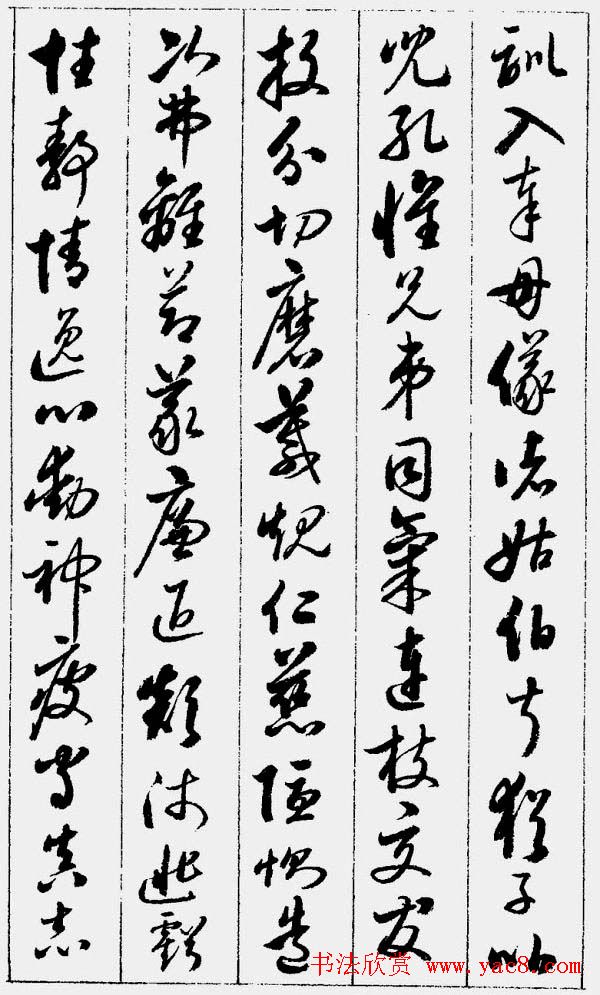 訓入奉母儀諸姑伯叔猶子比
兒孔懷兄弟同氣連枝交友
投分切磨箴規仁慈隱惻造
次弗離節義廉退顛沛匪虧
性靜情逸心動神疲守真志
书法欣赏 www.yac8.com